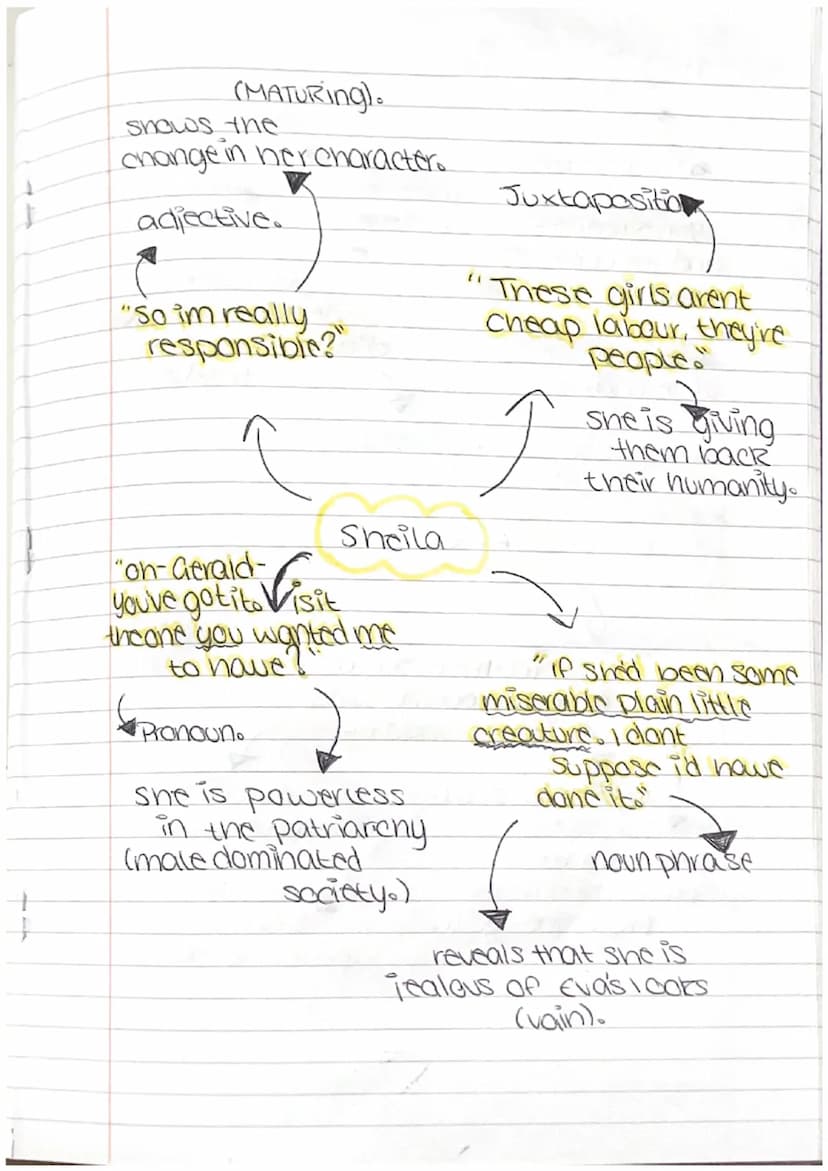 (MATURing).
shows the
change in her character.
adjective.
"So im really
responsible?"
Juxtaposition
" These girls arent
cheap labour, they're
people."
she is giving
them back
their humanity.
Sheila
"oh-Gerald-
you've got it. is it
the one you wanted me
to have?"
Pronoun.
she is powerless
in the patriarchy
(male dominated
society.)
"if she'd been some
miserable plain little
creature. i dont
suppose i'd have
done it."
noun phrase
reveals that she is
jealous of Eva's looks
(vain).